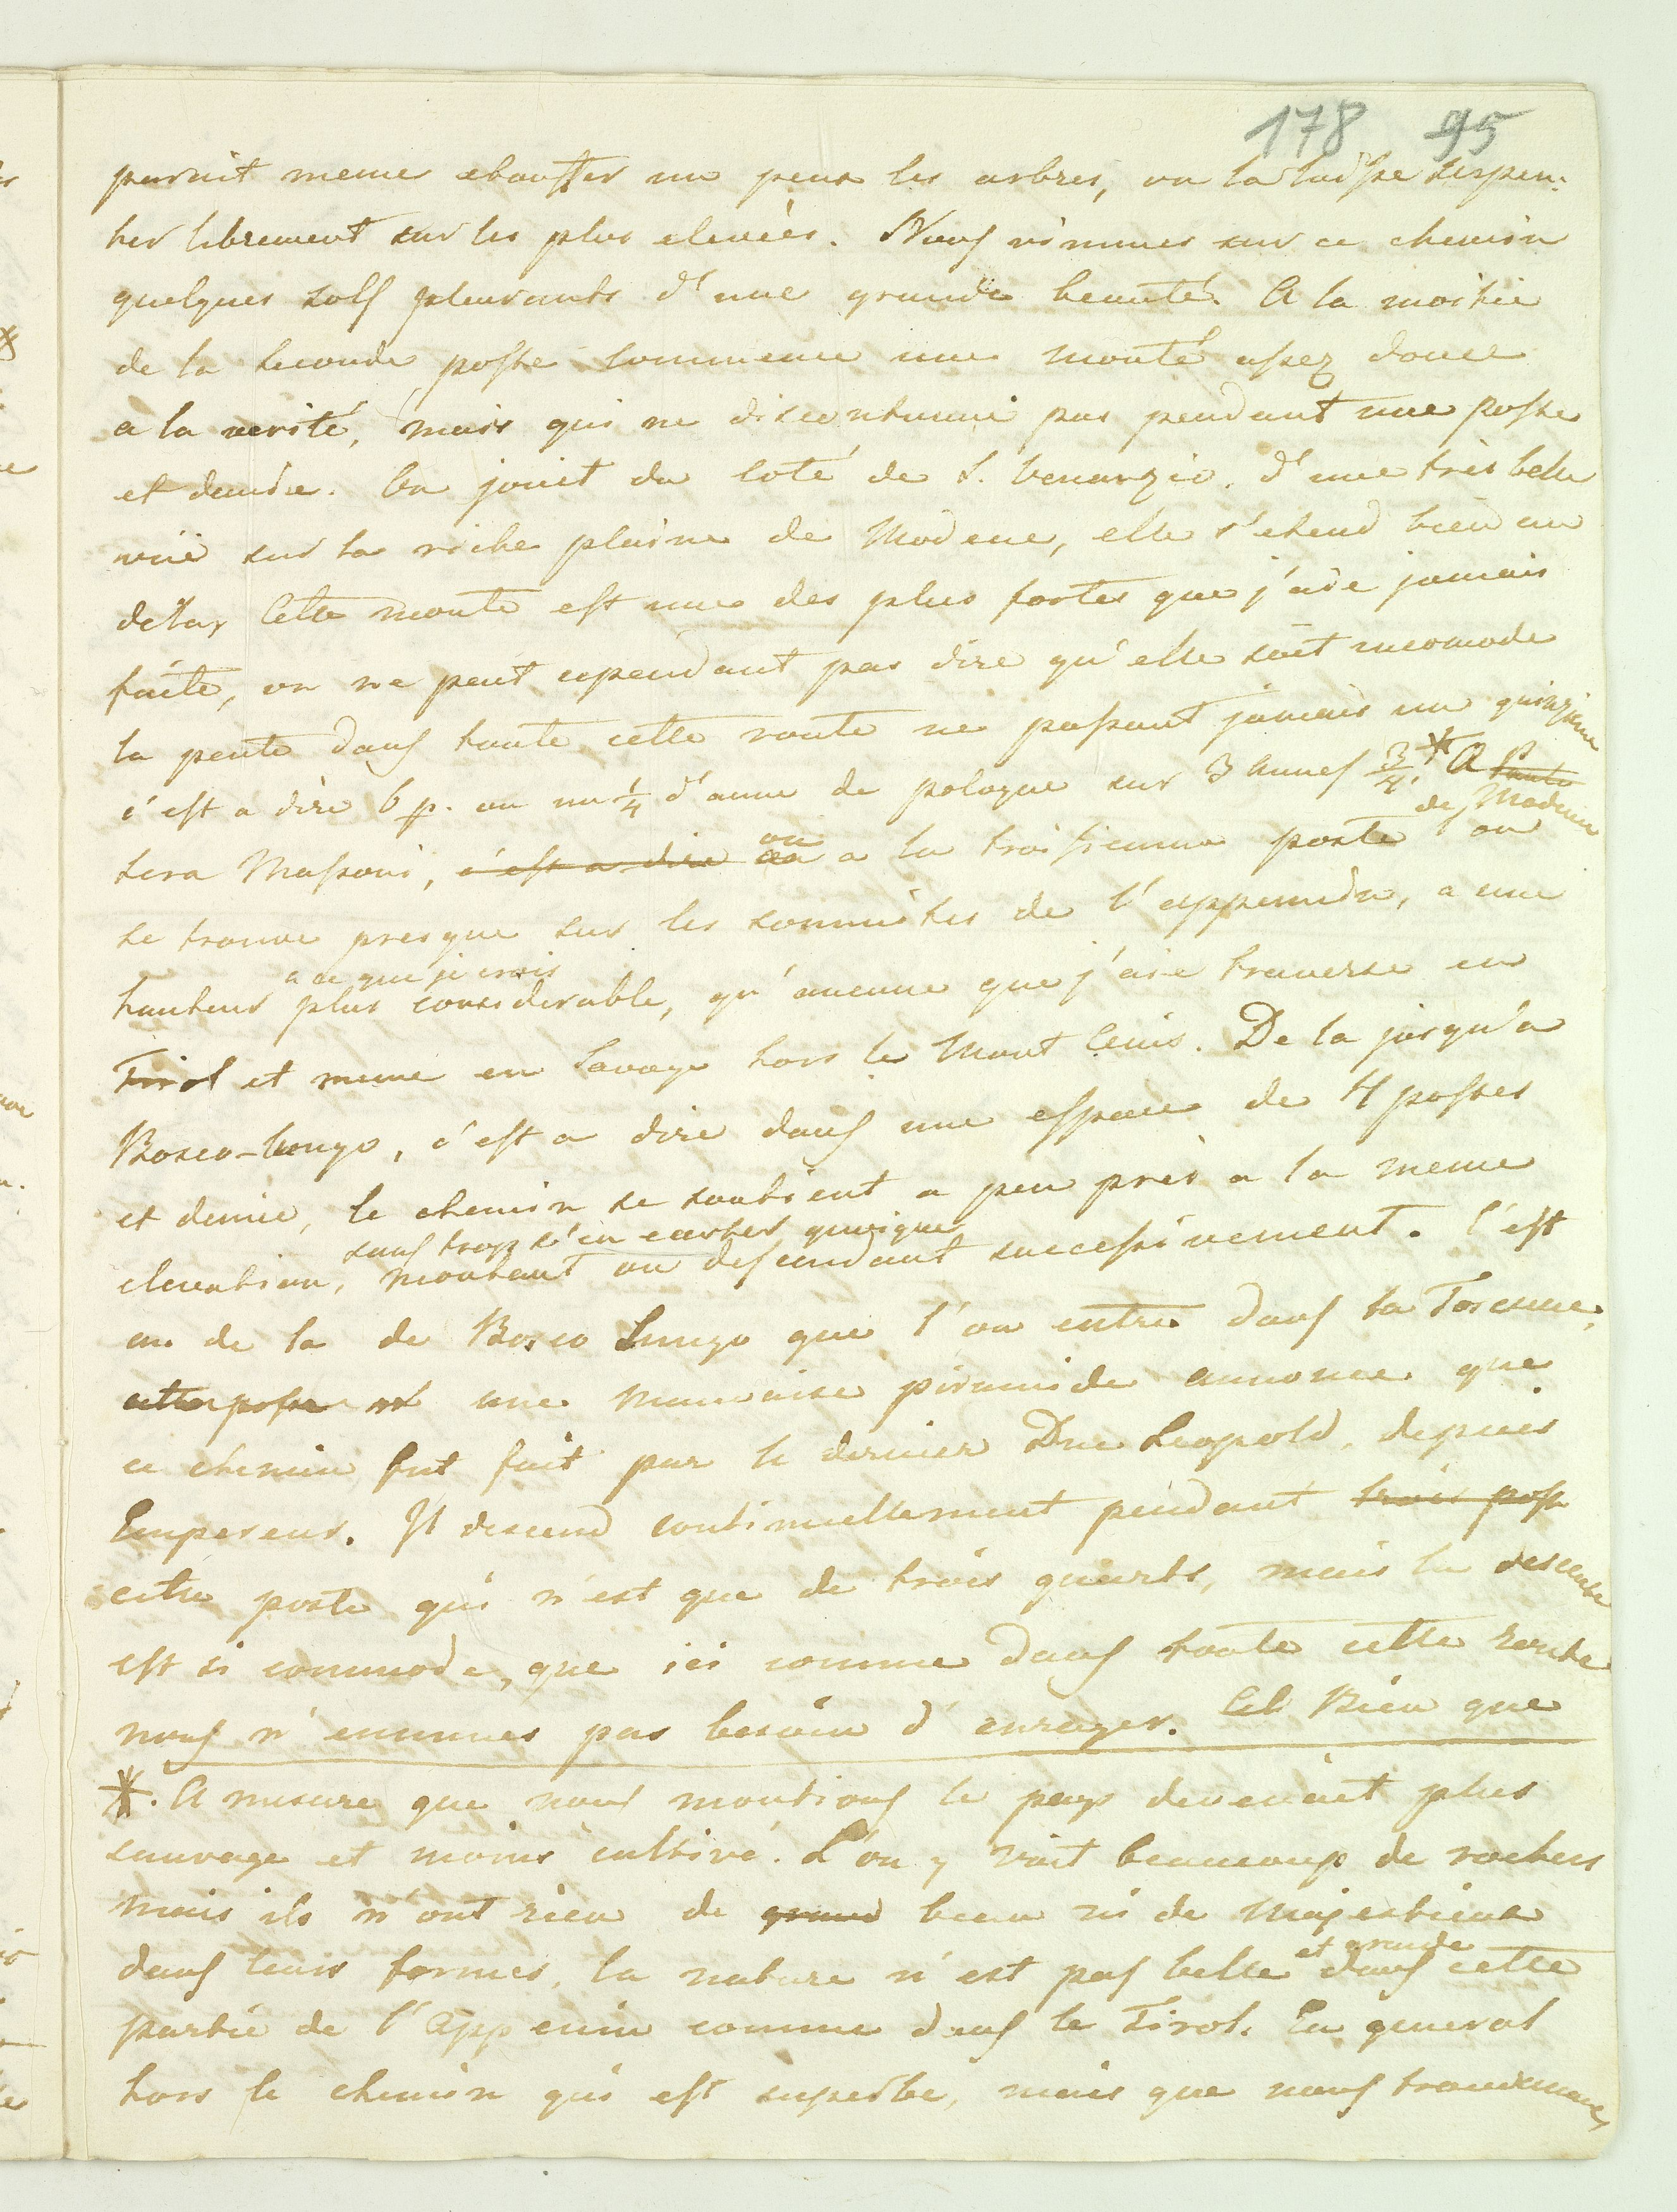 178 95
paroit meme etouffer un peux les arbres, on la laisse serpen:
ter librement sur les plus elevées. Nous vimmes sur ce chemin
quelques sols pleurants d'une grande beauté. A la moitie
de la seconde poste commence une monté assez douce
a la verité, mais qui ne discontinuai pas pendant une poste
et demie. On jouit du coté de S. Venanzio, d'une très belle
vuë sur la riche plaine de Modene, elle s'etend bien au
dela, Cette monte est une des plus fortes que j'aie jamais
faite, on ne peut cependant pas dire qu'elle soit incomode
la pente dans toute cette route ne passant jamais un quinzieme
c'est a dire 6 p. ou un 1/4 d'aune de pologne sur 3 aunes 3/4. * A Paulo
de Modene
sera Massoni, c'est a dire ou a la troisiemme poste on
se trouve presque sur les sommites de l'appennin, a une
a ce que je crois
hauteur plus considerable, qu'aucune que j'aie traverse en
Tirol et meme en Savoye hors le Mont Cenis. De la jusqu'a
Bosco-lungo, c'est a dire dans une espace de 4 postes
et demie, le chemin se soutient a peu près a la meme
sans trop s'en ecarter quoique
elevation, montant ou descendant successivement. C'est
au de la de Bosco Lungo que l'on entre dans la Toscane,
cette poste et une mauvaise piramide annonce que
ce chemin fut fait par le dernier Duc Leopold, depuis
Empereur. Il descend continuellement pendant trois post
cette poste qui n'est que de trois quarts, mais la descente
est si commode, que ici comme dans toute cette route
nous n'eummes pas besoin d'enrayer. Bien que
*. A mesure que nous montions le pays devenoit plus
sauvage et moins cultivé. L'on y voit beaucoup de rochers
mais ils n'ont rien de grand beau ni de majestieux
dans leurs formes, la nature n'est pas belle et grande dans cette
partie de l'Appenin comme dans le Tirol. En general
hors le chemin qui est superbe, mais que nous trouvammes